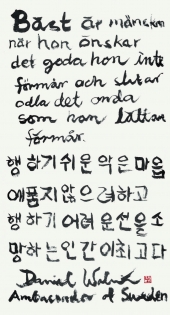 Bäst är människan
när hon önskar
det goda hon inte
förmår och slutar
odla det onda
som hon lättast
förmår.
행하기쉬운악은마음
에품지않으려하고
행하기어려운선을소
망하는인간이최고다
Daniel
Ambassador of Sweden